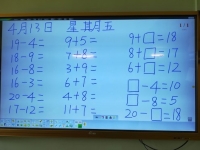 4月13日 星期五
19-4= 9+5= 9+□=18
18-9= 7+8= 8+□=17
16-8= 3+9= 6+□=12
16-3= 6+7= □-4=10
20-4= 4+8= □-8=5
17-12= 11+7= 20-□=18